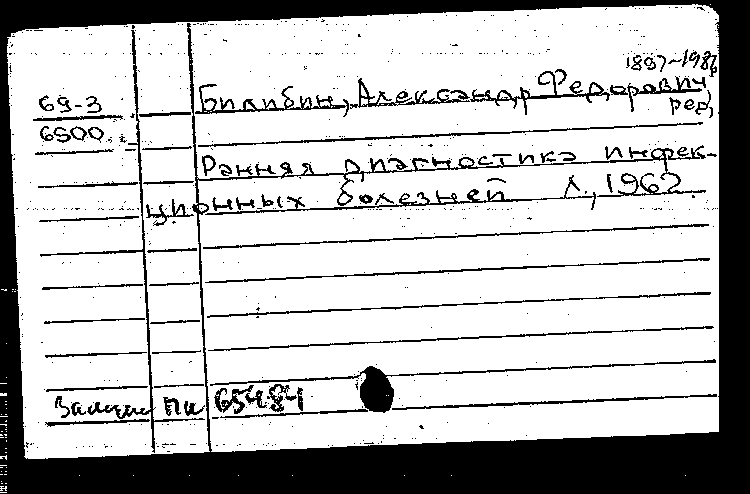 1897-1986
69-3 Билибин, Александр Федорович,
6500 ред.
Ранняя диагностика инфек-
ционных болезней Л., 1962.
Пи 65484